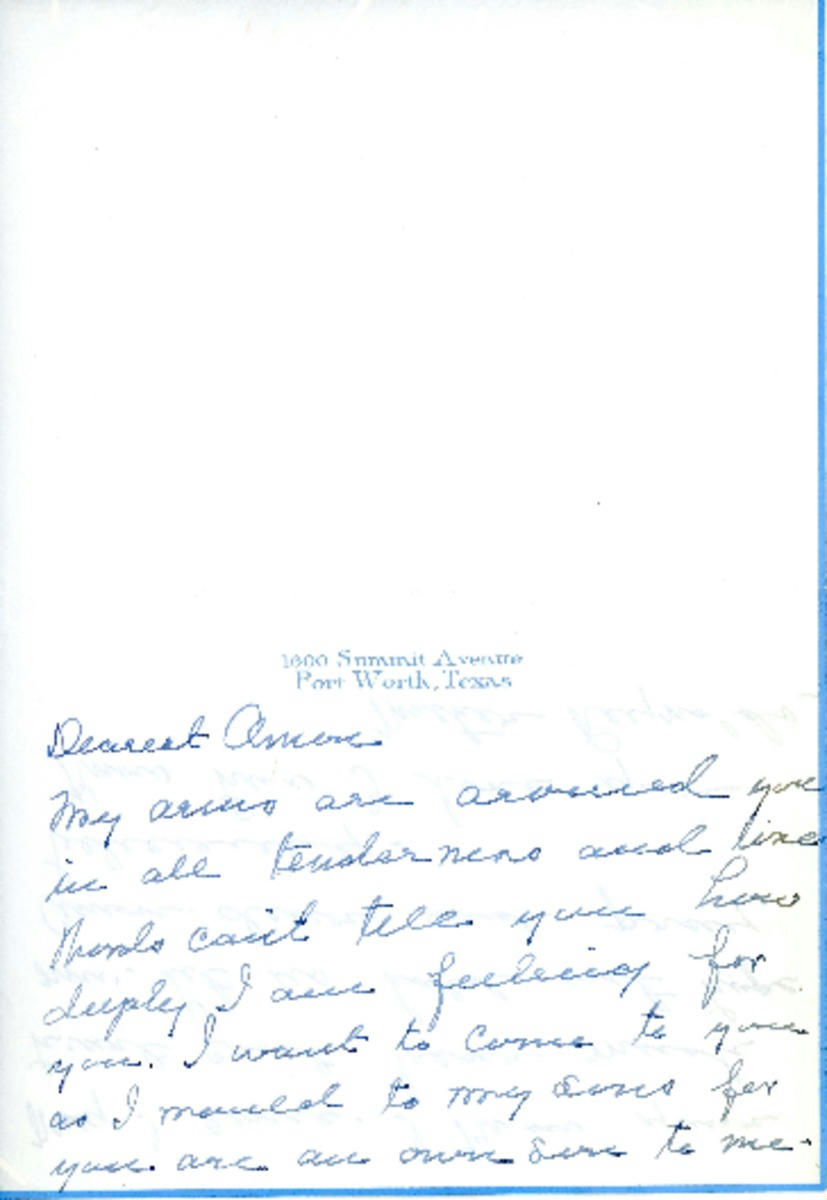 1600 Summit Avenue
Fort Worth, Texas
Dearest Amon
My arms are around you
in all tenderness and love
Words can't tell you how
deeply I am feeling for
you. I want to come to you
as I would to my sons for
you are an own son to me.